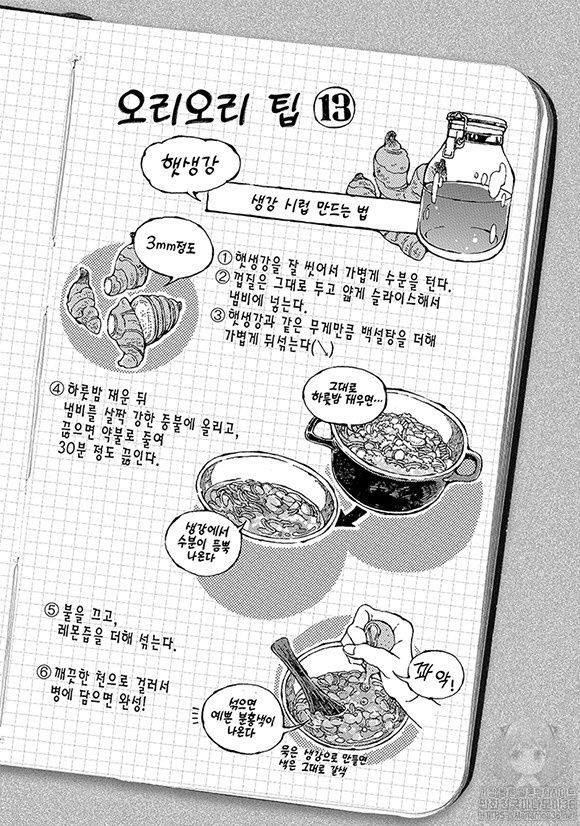 오리오리 팁 ⑬
햇생강
생강 시럽 만드는 법
3mm정도
① 햇생강을 잘 씻어서 가볍게 수분을 턴다.
② 껍질은 그대로 두고 얇게 슬라이스해서
냄비에 넣는다.
③ 햇생강과 같은 무게만큼 백설탕을 더해
가볍게 뒤섞는다(\)
④ 하룻밤 재운 뒤
냄비를 살짝 강한 중불에 올리고,
끓으면 약불로 줄여
30분 정도 끓인다.
그대로
하룻밤 재우면…
생강에서
수분이 듬뿍
나온다
⑤ 불을 끄고,
레몬즙을 더해 섞는다.
⑥ 깨끗한 천으로 걸러서
병에 담으면 완성!
꽈악!
섞으면
예쁜 분홍색이
나온다
묵은 생강으로 만들면
색은 그대로 갈색